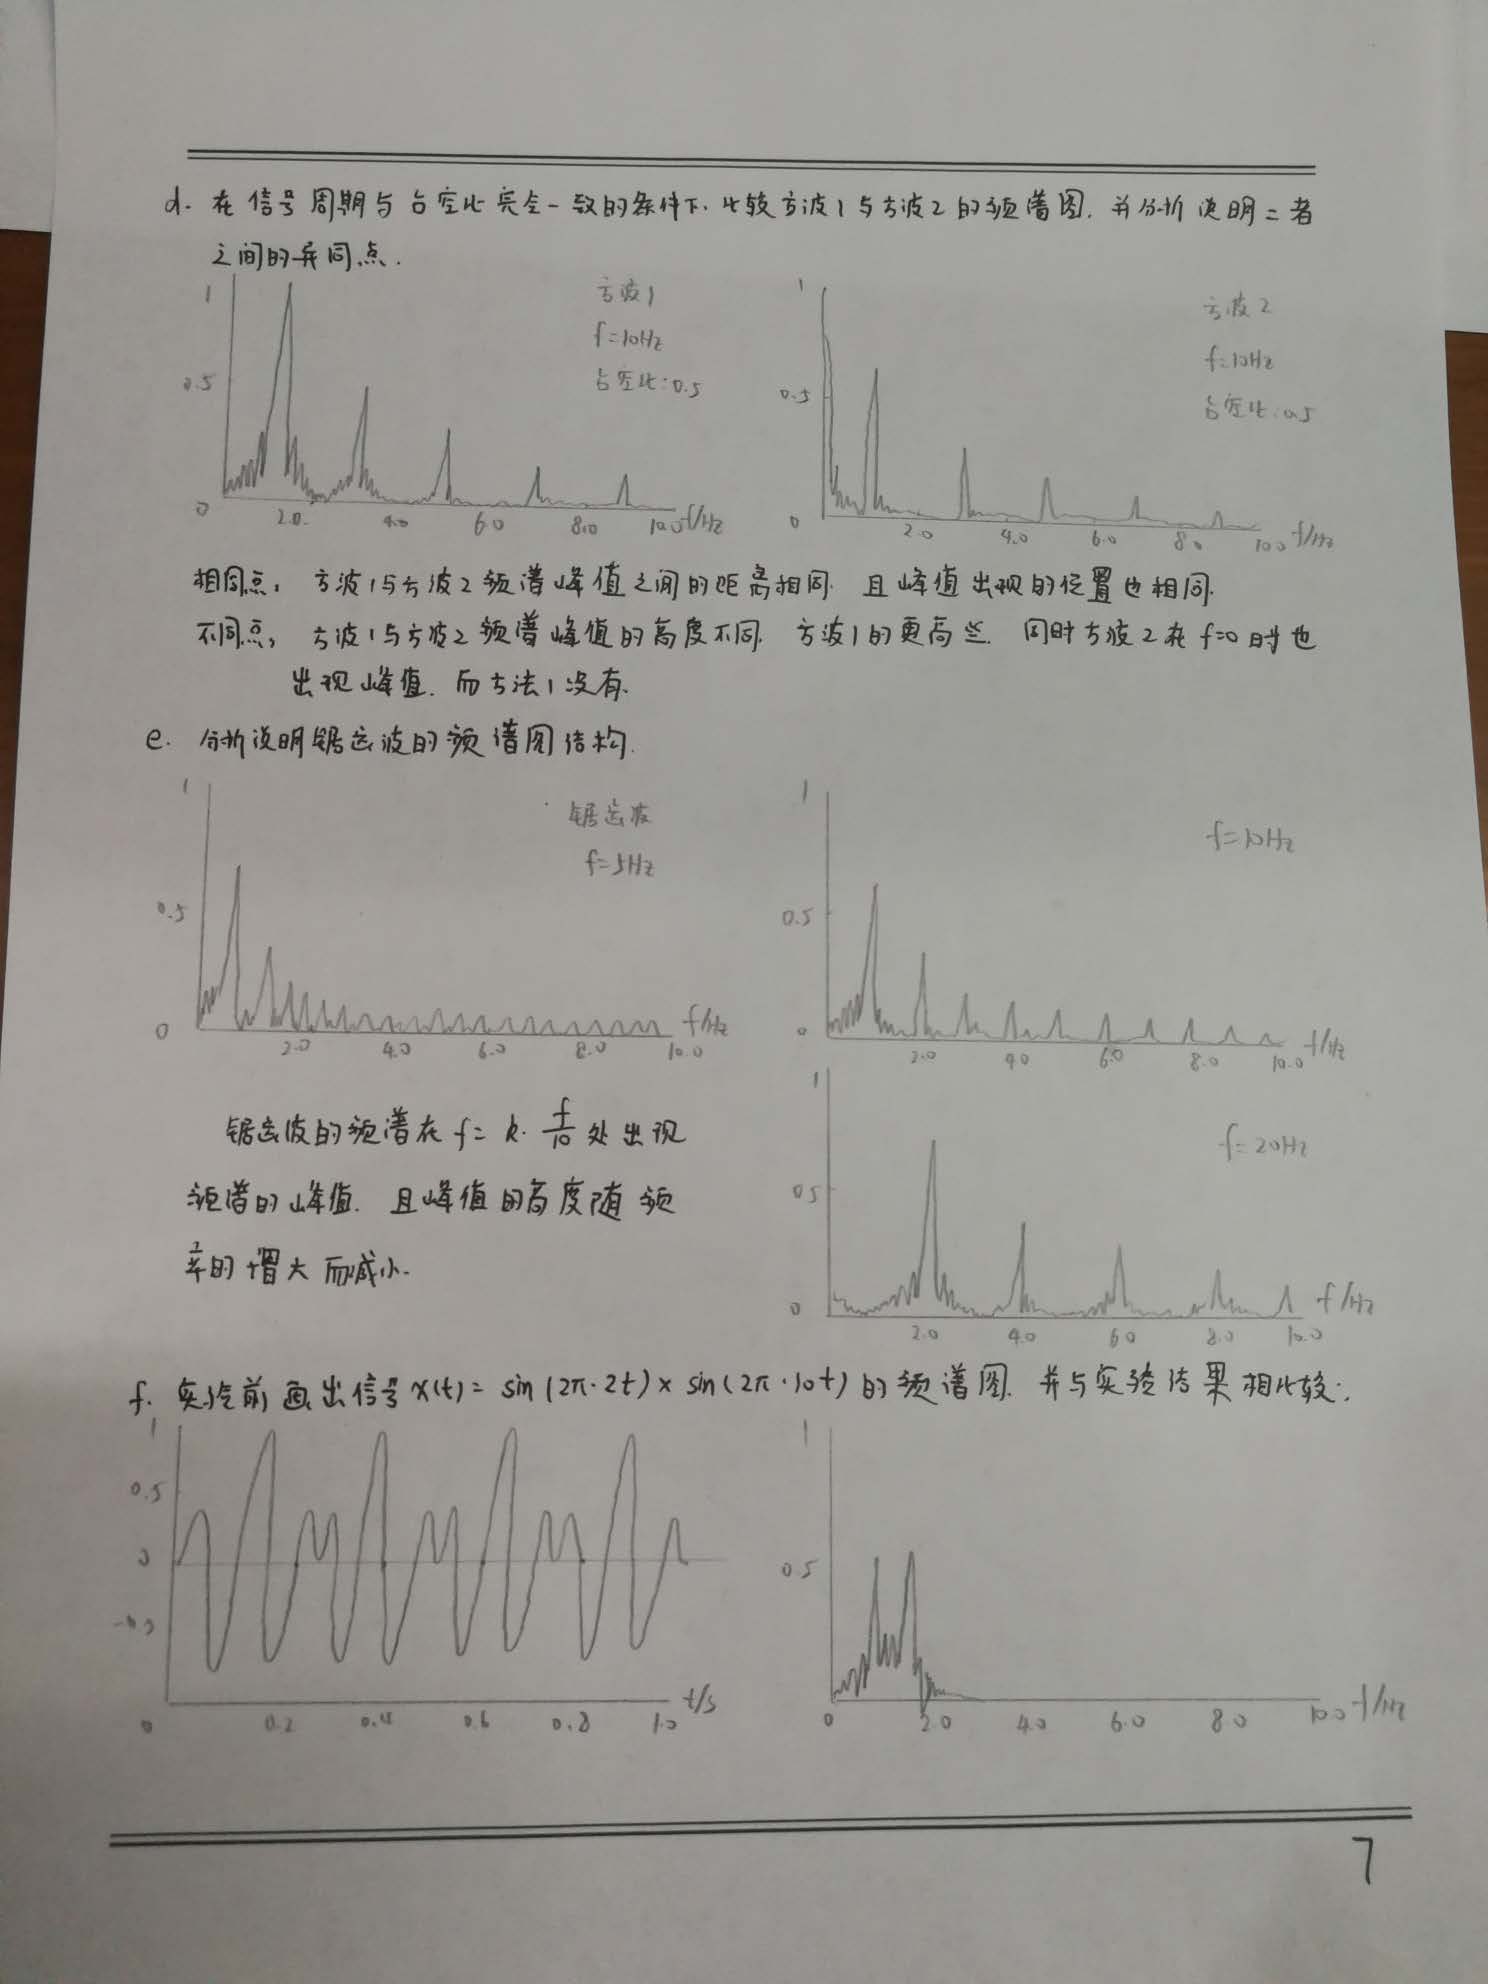 d. 在信号周期与占空比完全一致的条件下. 比较方波1与方波2的频谱图. 并分析说明二者
之间的异同点.
1
0.5
0
2.0.
4.0
6.0
8.0
10.0 f/Hz
方波1
f=10Hz
占空比:0.5
1
0.5
0
2.0
4.0
6.0
8.0
10.0 f/Hz
方波2
f=10Hz
占空比:0.5
相同点: 方波1与方波2频谱峰值之间的距离相同. 且峰值出现的位置也相同.
不同点: 方波1与方波2频谱峰值的高度不同. 方波1的更高些. 同时方波2在f=0时也
出现峰值. 而方法1没有.
e. 分析说明锯齿波的频谱图结构.
1
0.5
0
2.0
4.0
6.0
8.0
10.0
f/Hz
锯齿波
f=5Hz
1
0.5
0
2.0
4.0
6.0
8.0
10.0 f/Hz
f=10Hz
锯齿波的频谱在 f= k· f/10 处出现
频谱的峰值. 且峰值的高度随频
率的增大而减小.
1
0.5
0
2.0
4.0
6.0
8.0
10.0
f/Hz
f=20Hz
f. 实验前画出信号x(t)= sin(2π·2t)× sin(2π·10t)的频谱图. 并与实验结果相比较:
1
0.5
0
0
0.2
0.4
0.6
0.8
1.0
t/s
1
0.5
0
2.0
4.0
6.0
8.0
10.0 f/Hz
7